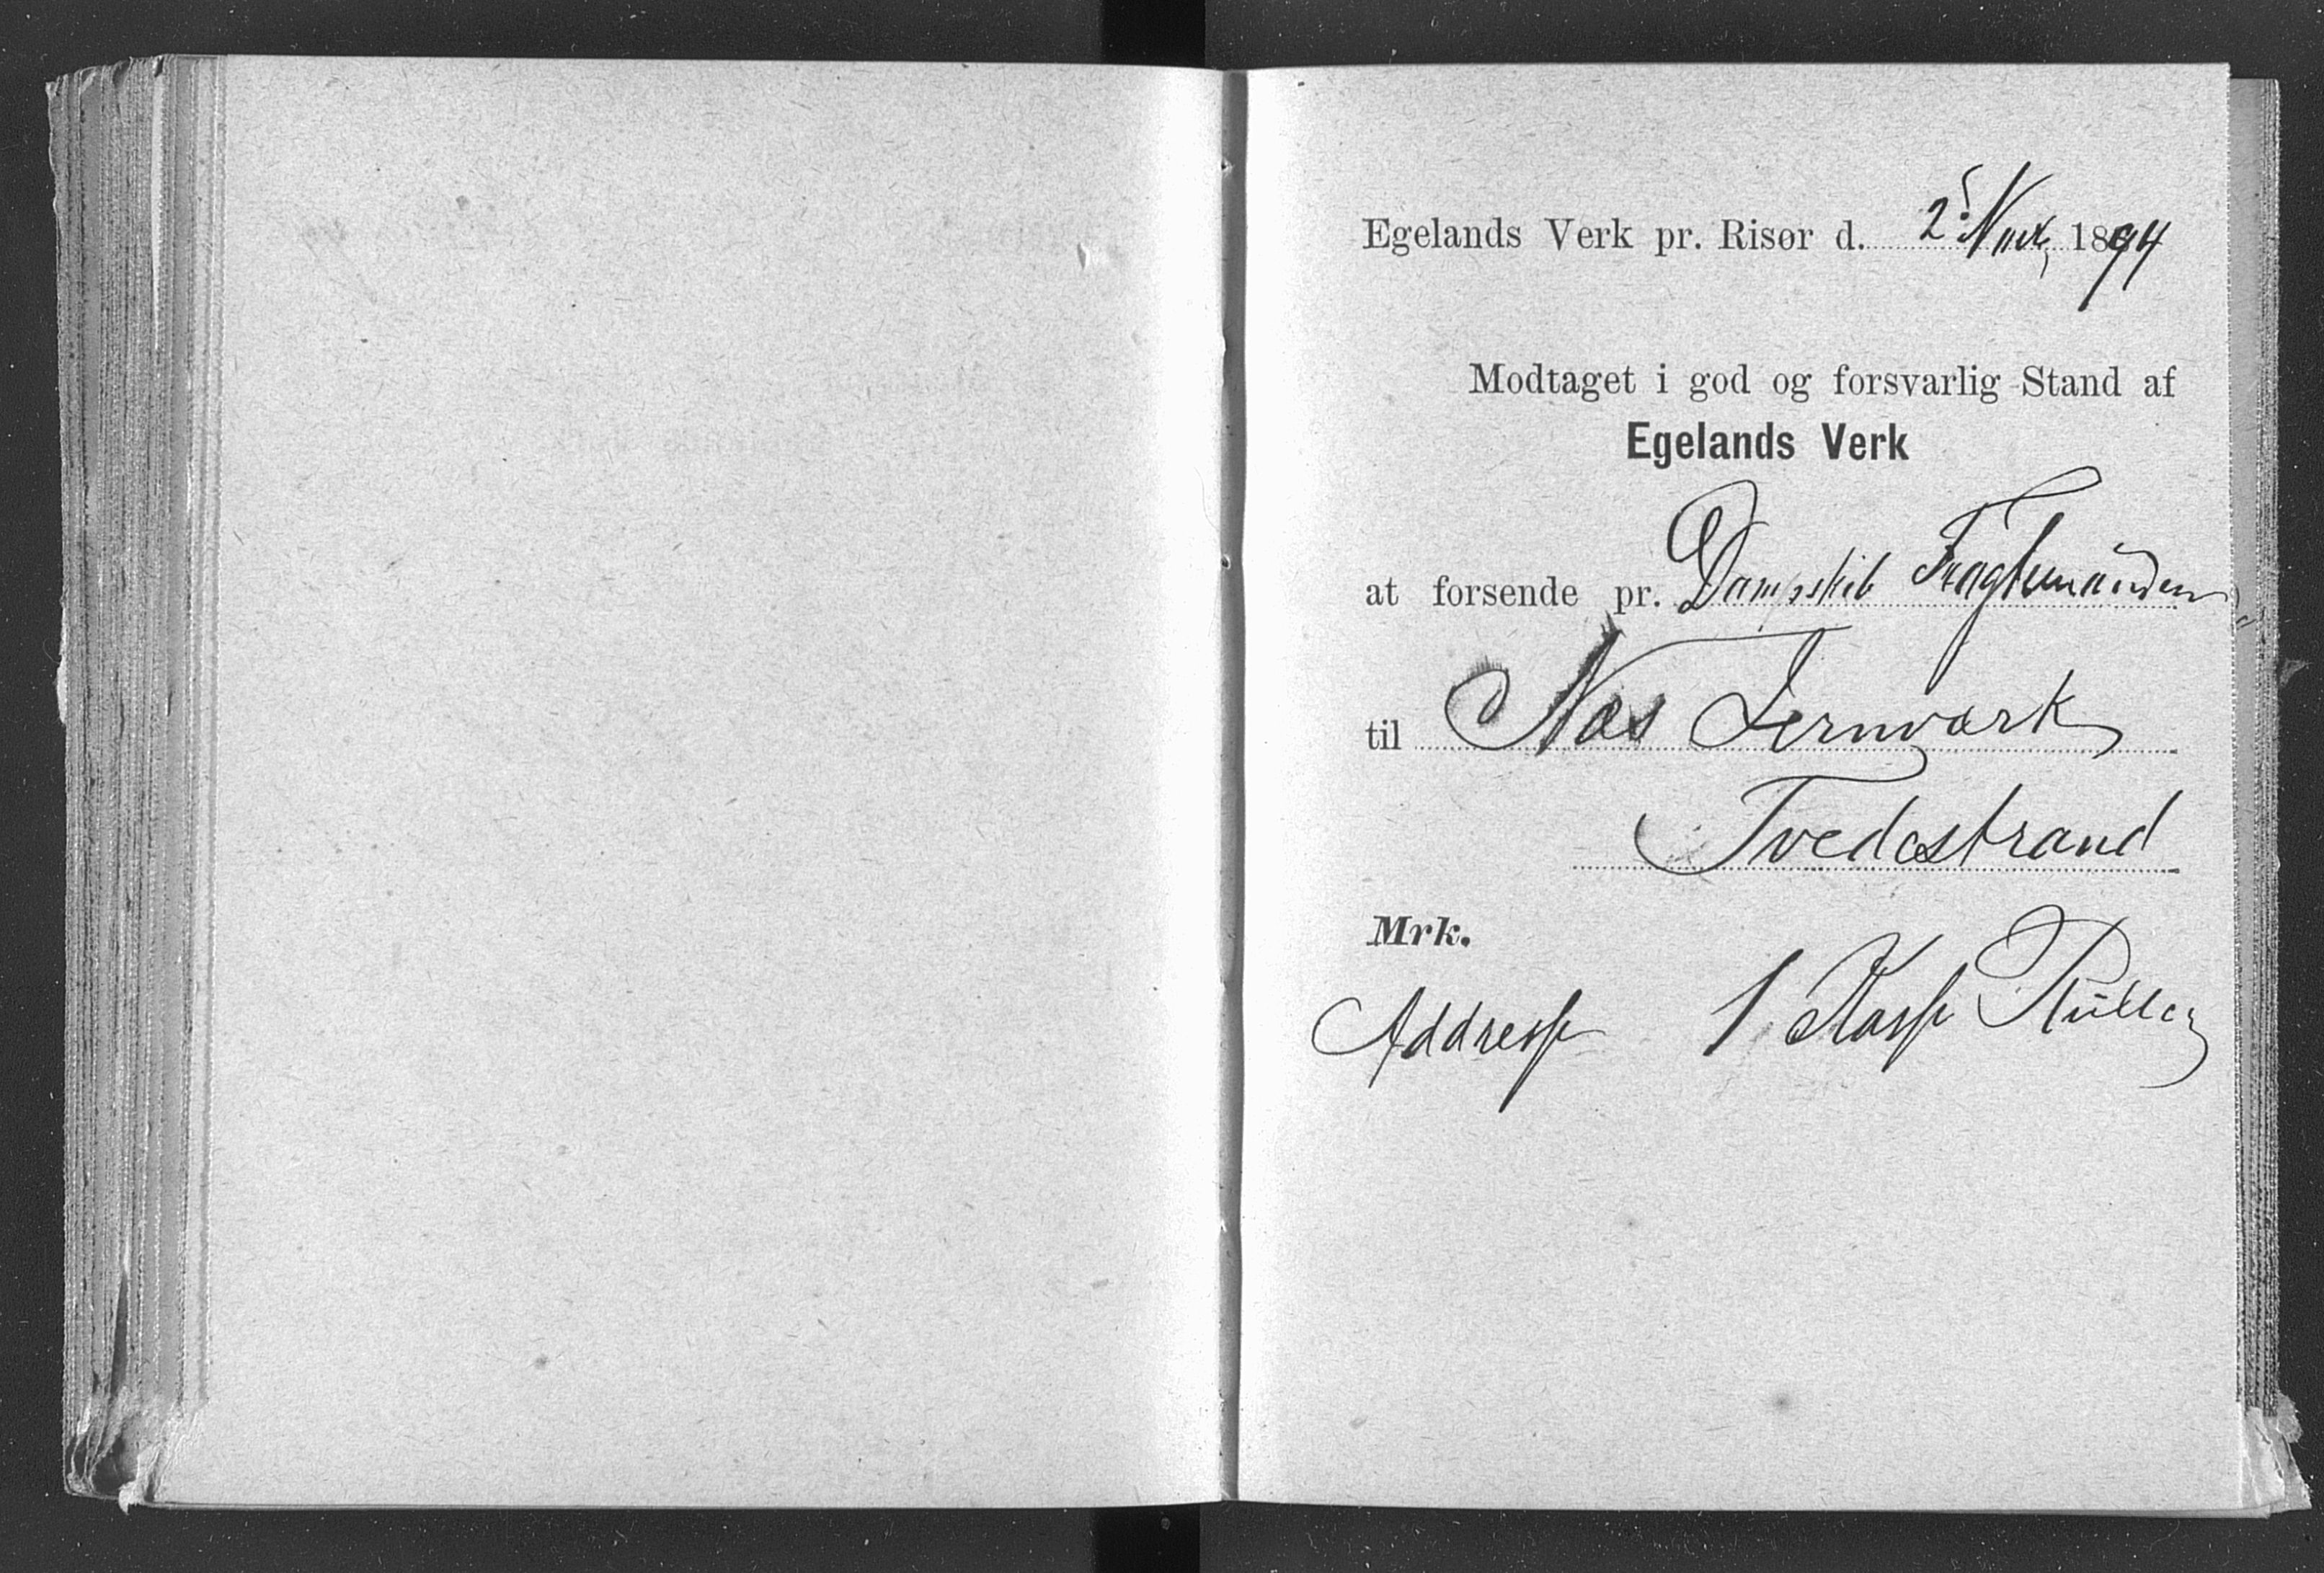 Egelands Verk pr. Risør d. 2 1894
Modtaget i god og forsvarlig Stand af
Egelands Verk
at forsende pr. Dampskib Fragtmanden
til Næs Jernværk
Tvedestrand
Mrk.
Addresse 1 Kasse